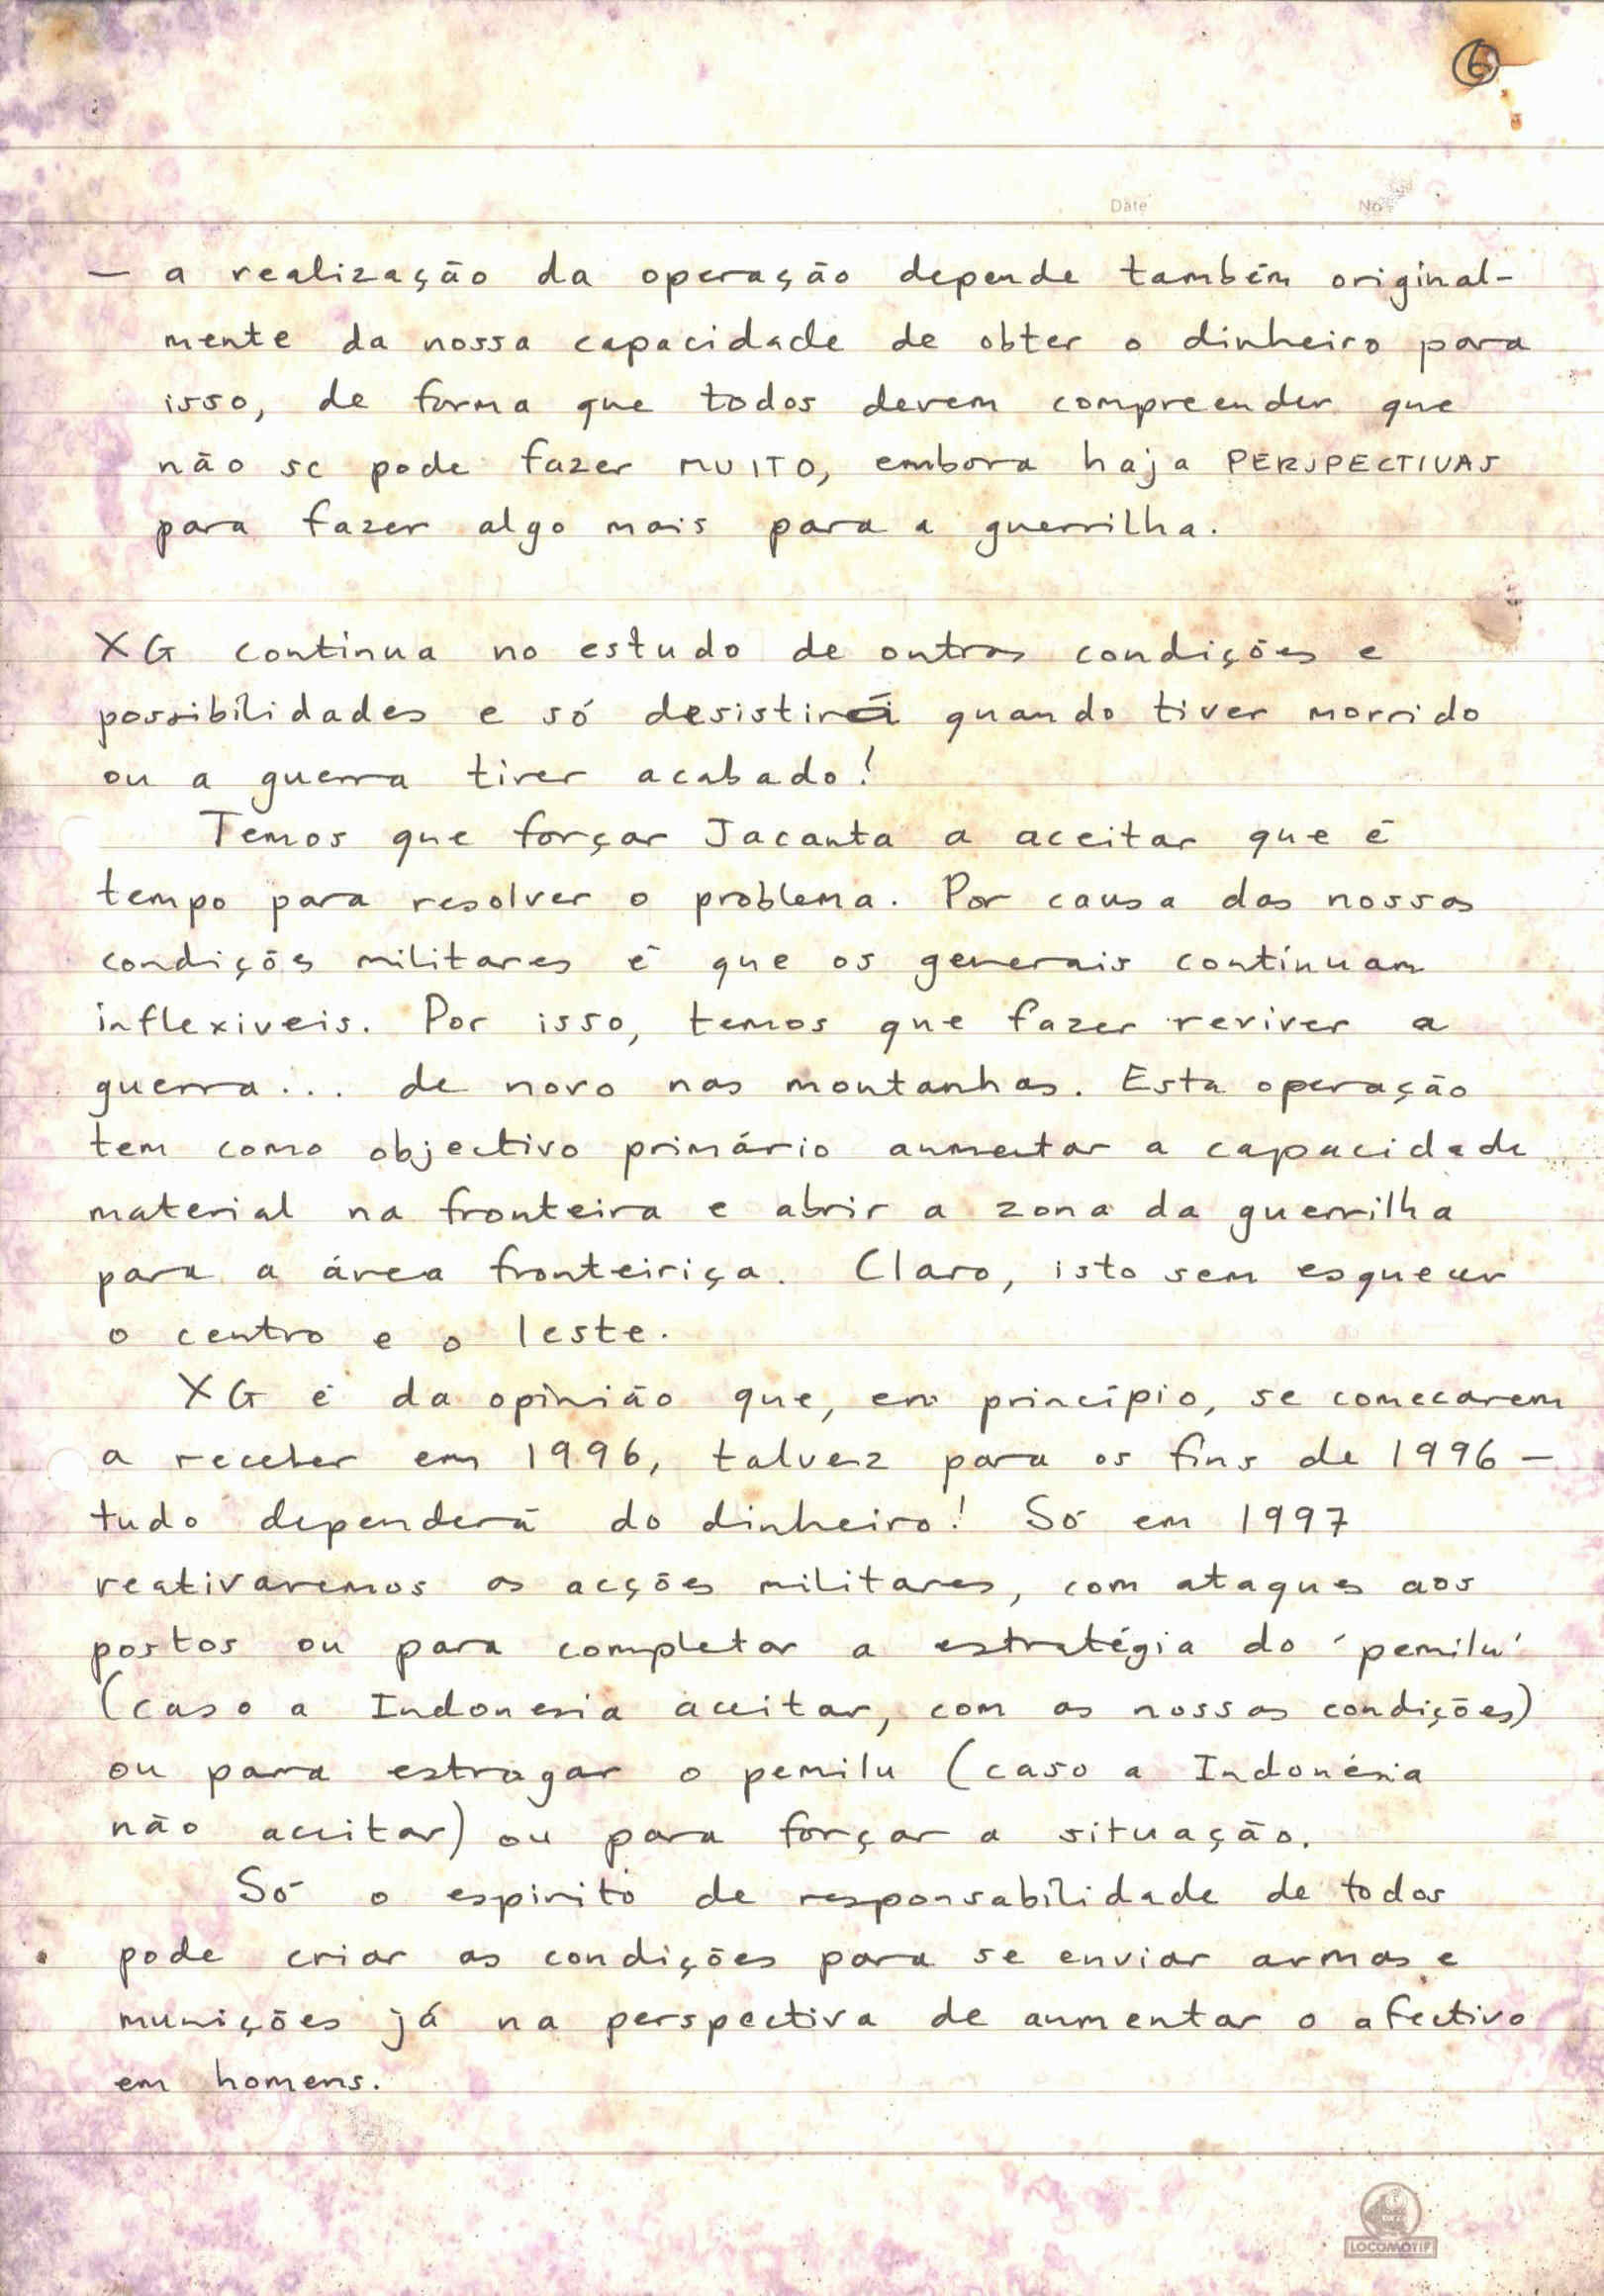 6
Date No
— a realização da operação depende também original-
mente da nossa capacidade de obter o dinheiro para
isso, de forma que todos devem compreender que
não se pode fazer MUITO, embora haja PERSPECTIVAS
para fazer algo mais para a guerrilha.
XG continua no estudo de outras condições e
possibilidades e só desistirá quando tiver morrido
ou a guerra tiver acabado!
Temos que forçar Jacarta a aceitar que é
tempo para resolver o problema. Por causa das nossas
condições militares é que os generais continuam
inflexiveis. Por isso, temos que fazer reviver a
guerra... de novo nas montanhas. Esta operação
tem como objectivo primário aumentar a capacidade
material na fronteira e abrir a zona da guerrilha
para a área fronteiriça. Claro, isto sem esquecer
o centro e o leste.
XG é da opinião que, em princípio, se comecarem
a receber em 1996, talvez para os fins de 1996 —
tudo dependerá do dinheiro! Só em 1997
reativaremos as acções militares, com ataques aos
postos ou para completar a estratégia do 'pemilu'
(caso a Indonesia aceitar, com as nossas condições)
ou para estragar o pemilu (caso a Indonésia
não aceitar) ou para forçar a situação.
Só o espirito de responsabilidade de todos
pode criar as condições para se enviar armas e
munições já na perspectiva de aumentar o efectivo
em homens.
LOCOMOTIF